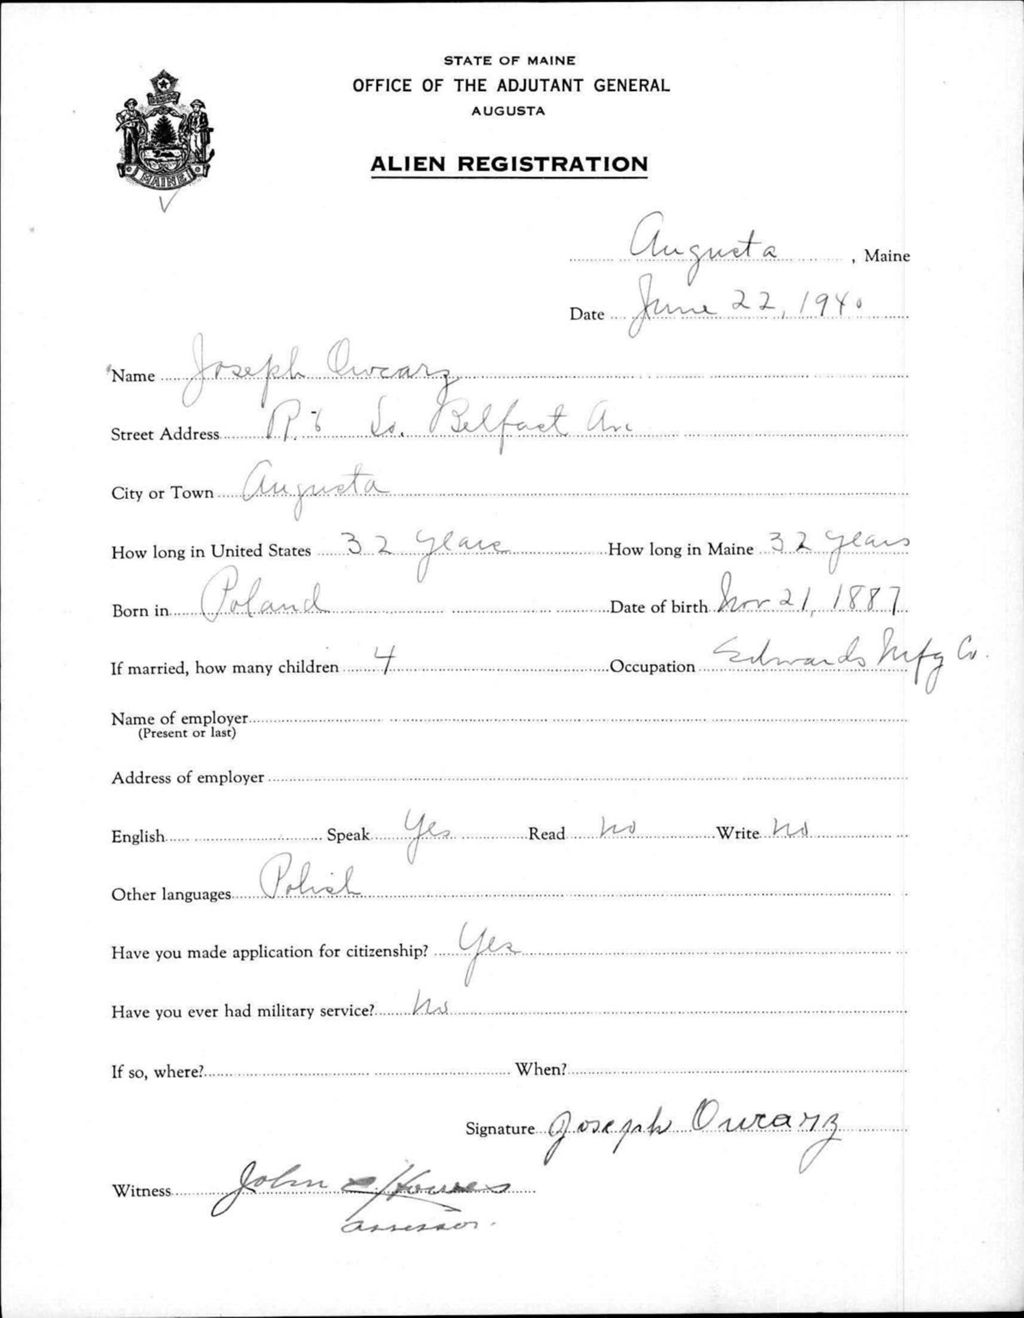 STATE OF MAINE
OFFICE OF THE ADJUTANT GENERAL
AUGUSTA
ALIEN REGISTRATION
MAINE
Augusta, Maine
Date June 22, 1940
Name Joseph Owcarz
Street Address R. 6 So. Belfast Av
City or Town Augusta
How long in United States 32 years How long in Maine 32 years
Born in Poland Date of birth Nov 21, 1887
If married, how many children 4 Occupation Edwards Mfg Co.
Name of employer
(Present or last)
Address of employer
English Speak Yes Read no Write no
Other languages Polish
Have you made application for citizenship? Yes
Have you ever had military service? no
If so, where? When?
Signature Joseph Owcarz
Witness John E Howes
assessor.